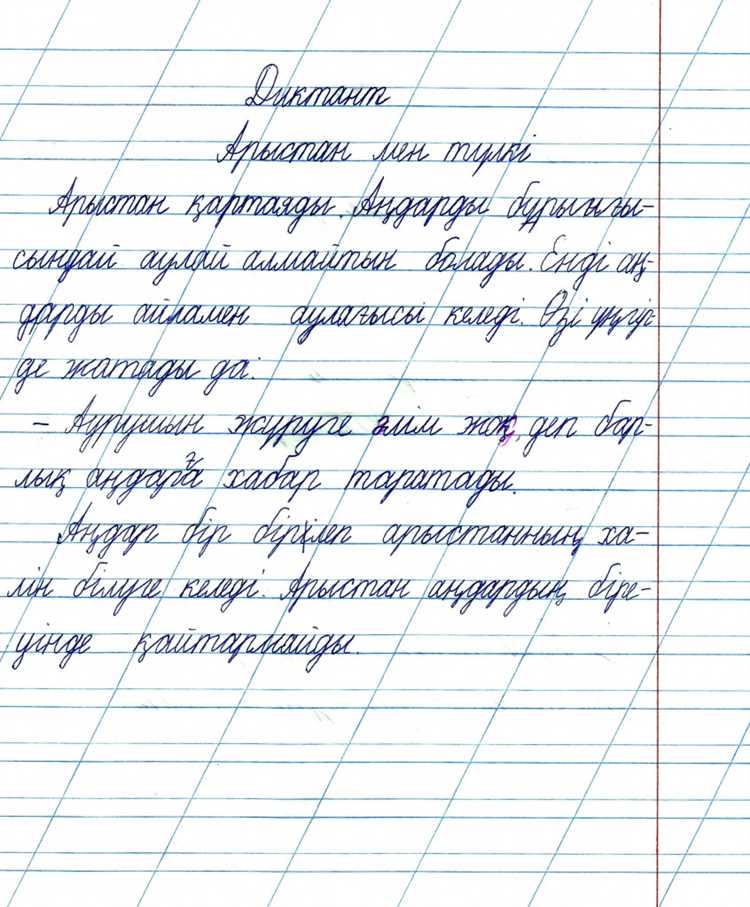 Диктант
Арыстан мен түлкі
Арыстан қартаяды. Аңдарды бұрынғы-
сындай аулай алмайтын болады. Енді аң-
дарды айламен аулағысы келеді. Өзі үңгір-
де жатады да:
– Аурушын жүруге әлім жоқ, деп бар-
лық аңдарға хабар таратады.
Аңдар бір бірілеп арыстанның ха-
лін білуге келеді. Арыстан аңдардың біре-
уінде қайтармайды.